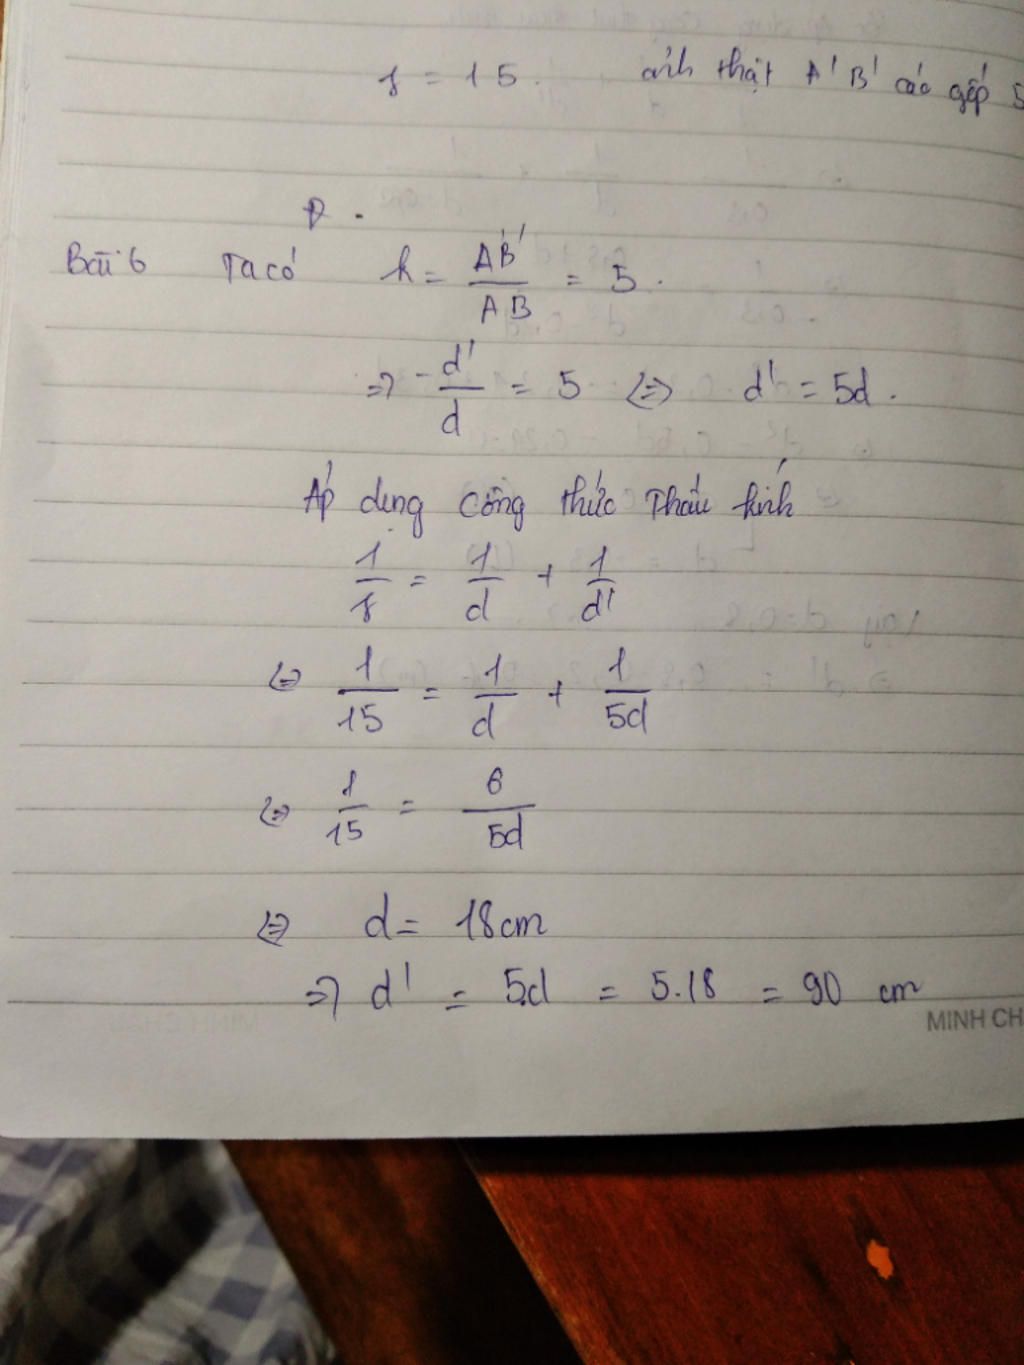 f = 15. ảnh thật A' B' cao gấp 5
Bài 6 Ta có k = A'B' / AB = 5.
=> - d' / d = 5 <=> d' = 5d.
Áp dụng công thức thấu kính
1/f = 1/d + 1/d'
<=> 1/15 = 1/d + 1/5d
<=> 1/15 = 6/5d
<=> d = 18cm
=> d' = 5.d = 5.18 = 90 cm
MINH CH